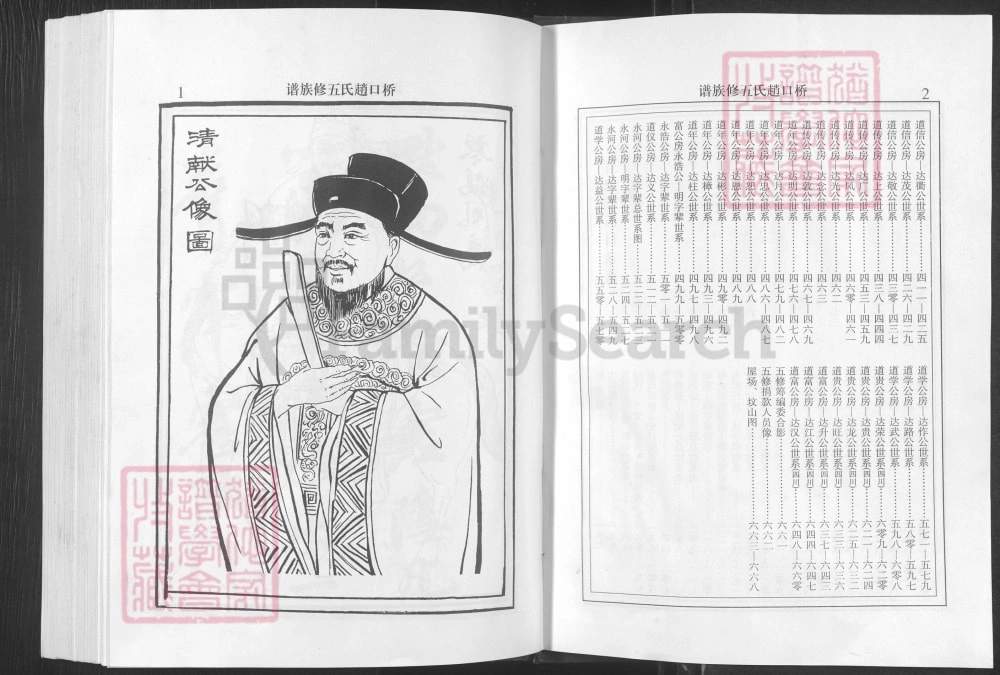 1
桥口趙氏五修族谱
清献公像圖
桥口趙氏五修族谱
2
道信公房—达衢公世系……四一一—四二五
道信公房—达茂公世系……四二六—四二九
道信公房—达敬公世系……四三零—四三七
道传公房—达上公世系……四三八—四四四
道传公房—达
公世系……四五三—四五九
道传公房—达风公世系……四六零—四六一
道传公房—达光公世系……四六二
道传公房—达念公世系……四六三
道传公房—达敦公世系……四六七—四六九
道年公房—达明公世系……四七六—四七八
道年公房—达月公世系……四七九—四八二
道年公房—达忠公世系……四八六—四八七
道年公房—达恕公世系……四八八
道年公房—达恩公世系……四八九
道年公房—达彬公世系……四九零—四九二
道年公房—达樟公世系……四九三—四九六
道年公房—达柱公世系……四九七—四九八
富公房永浩公—明字辈世系……四九九—五零零
永浩公房—达字辈世系……五零一—五一一
道仪公房—达义公世系……五一二—五二一
永河公房—达字辈总世系图……五二二—五二三
永河公房—明字辈世系……五二四—五二七
永河公房—达字辈世系……五二八—五四九
道学公房—达益公世系……五五零—五七零
道学公房—达作公世系……五七一—五七九
道学公房—达路公世系……五八零—五九七
道学公房—达武公世系……五九八—六零八
道贵公房—达荣公世系(四川)……六零九—六二零
道贵公房—达贵公世系(四川)……六二一—六二四
道贵公房—达龙公世系(四川)……六二五—六三二
道贵公房—达旺公世系(四川)……六三三—六三六
道富公房—达升公世系(四川)……六三七—六四三
道富公房—达江公世系(四川)……六四四—六四七
道富公房—达汉公世系(四川)……六四八—六六零
五修筹编委合影……六六一
五修捐款人员像……六六二
屋场、坟山图……六六三—六六八
FamilySearch